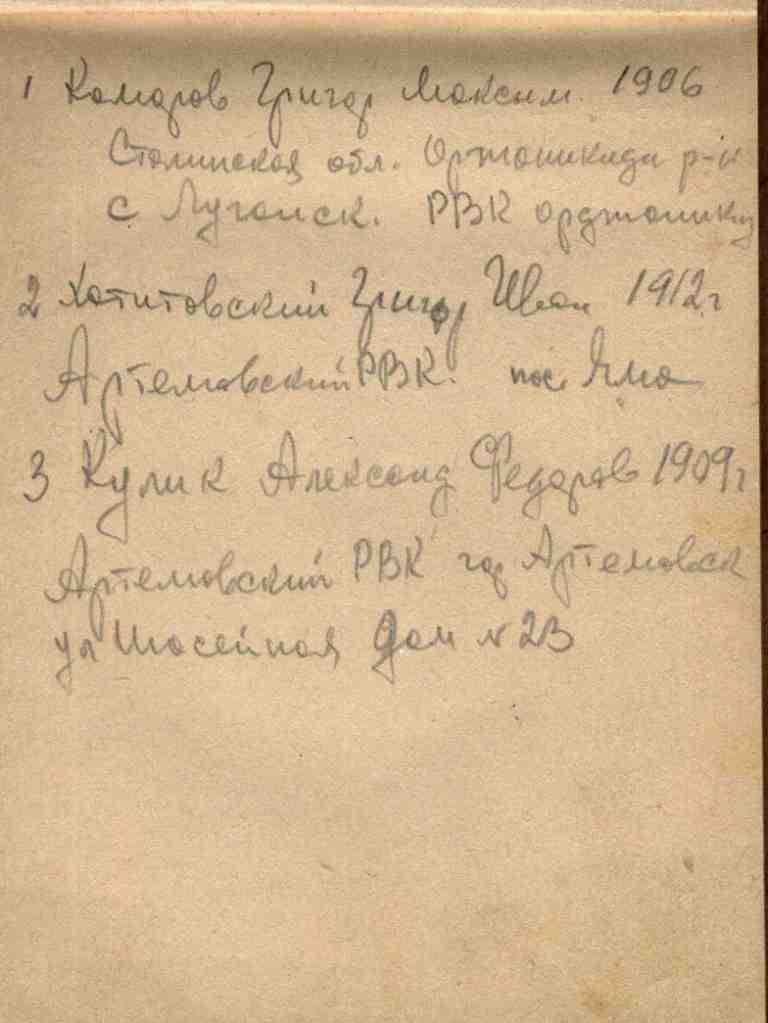 1 Комаров Григор Максим. 1906
Сталинская обл. Оржоникидзи р-н
с Луганск. РВК орджоники
2 Хотитовский Григор Иван 1912г
Артемовский РВК. пос. Яма
3 Кулик Александ Федоров 1909г
Артемовский РВК гор Артемовск
ул Шосейная Дом № 23